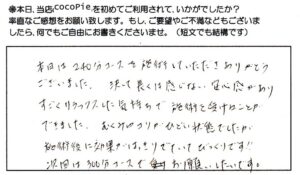 ●本日、当店cocoPieを初めてご利用されて、いかがでしたか?
率直なご感想をお願い致します。もし、ご要望やご不満などございま
したら、何でもご自由にお書きくださいませ。(短文でも結構です)
本日は240分コースを施術していただきありがとう
ございました。決して長くは感じない安心感があり
すごくリラックスした気持ちで施術を受けることが
できました。むくみやコリがひどい状態でしたが
施術後に効果がはっきりでていてびっくりです!!
次回は300分コースでお願いしたいです。